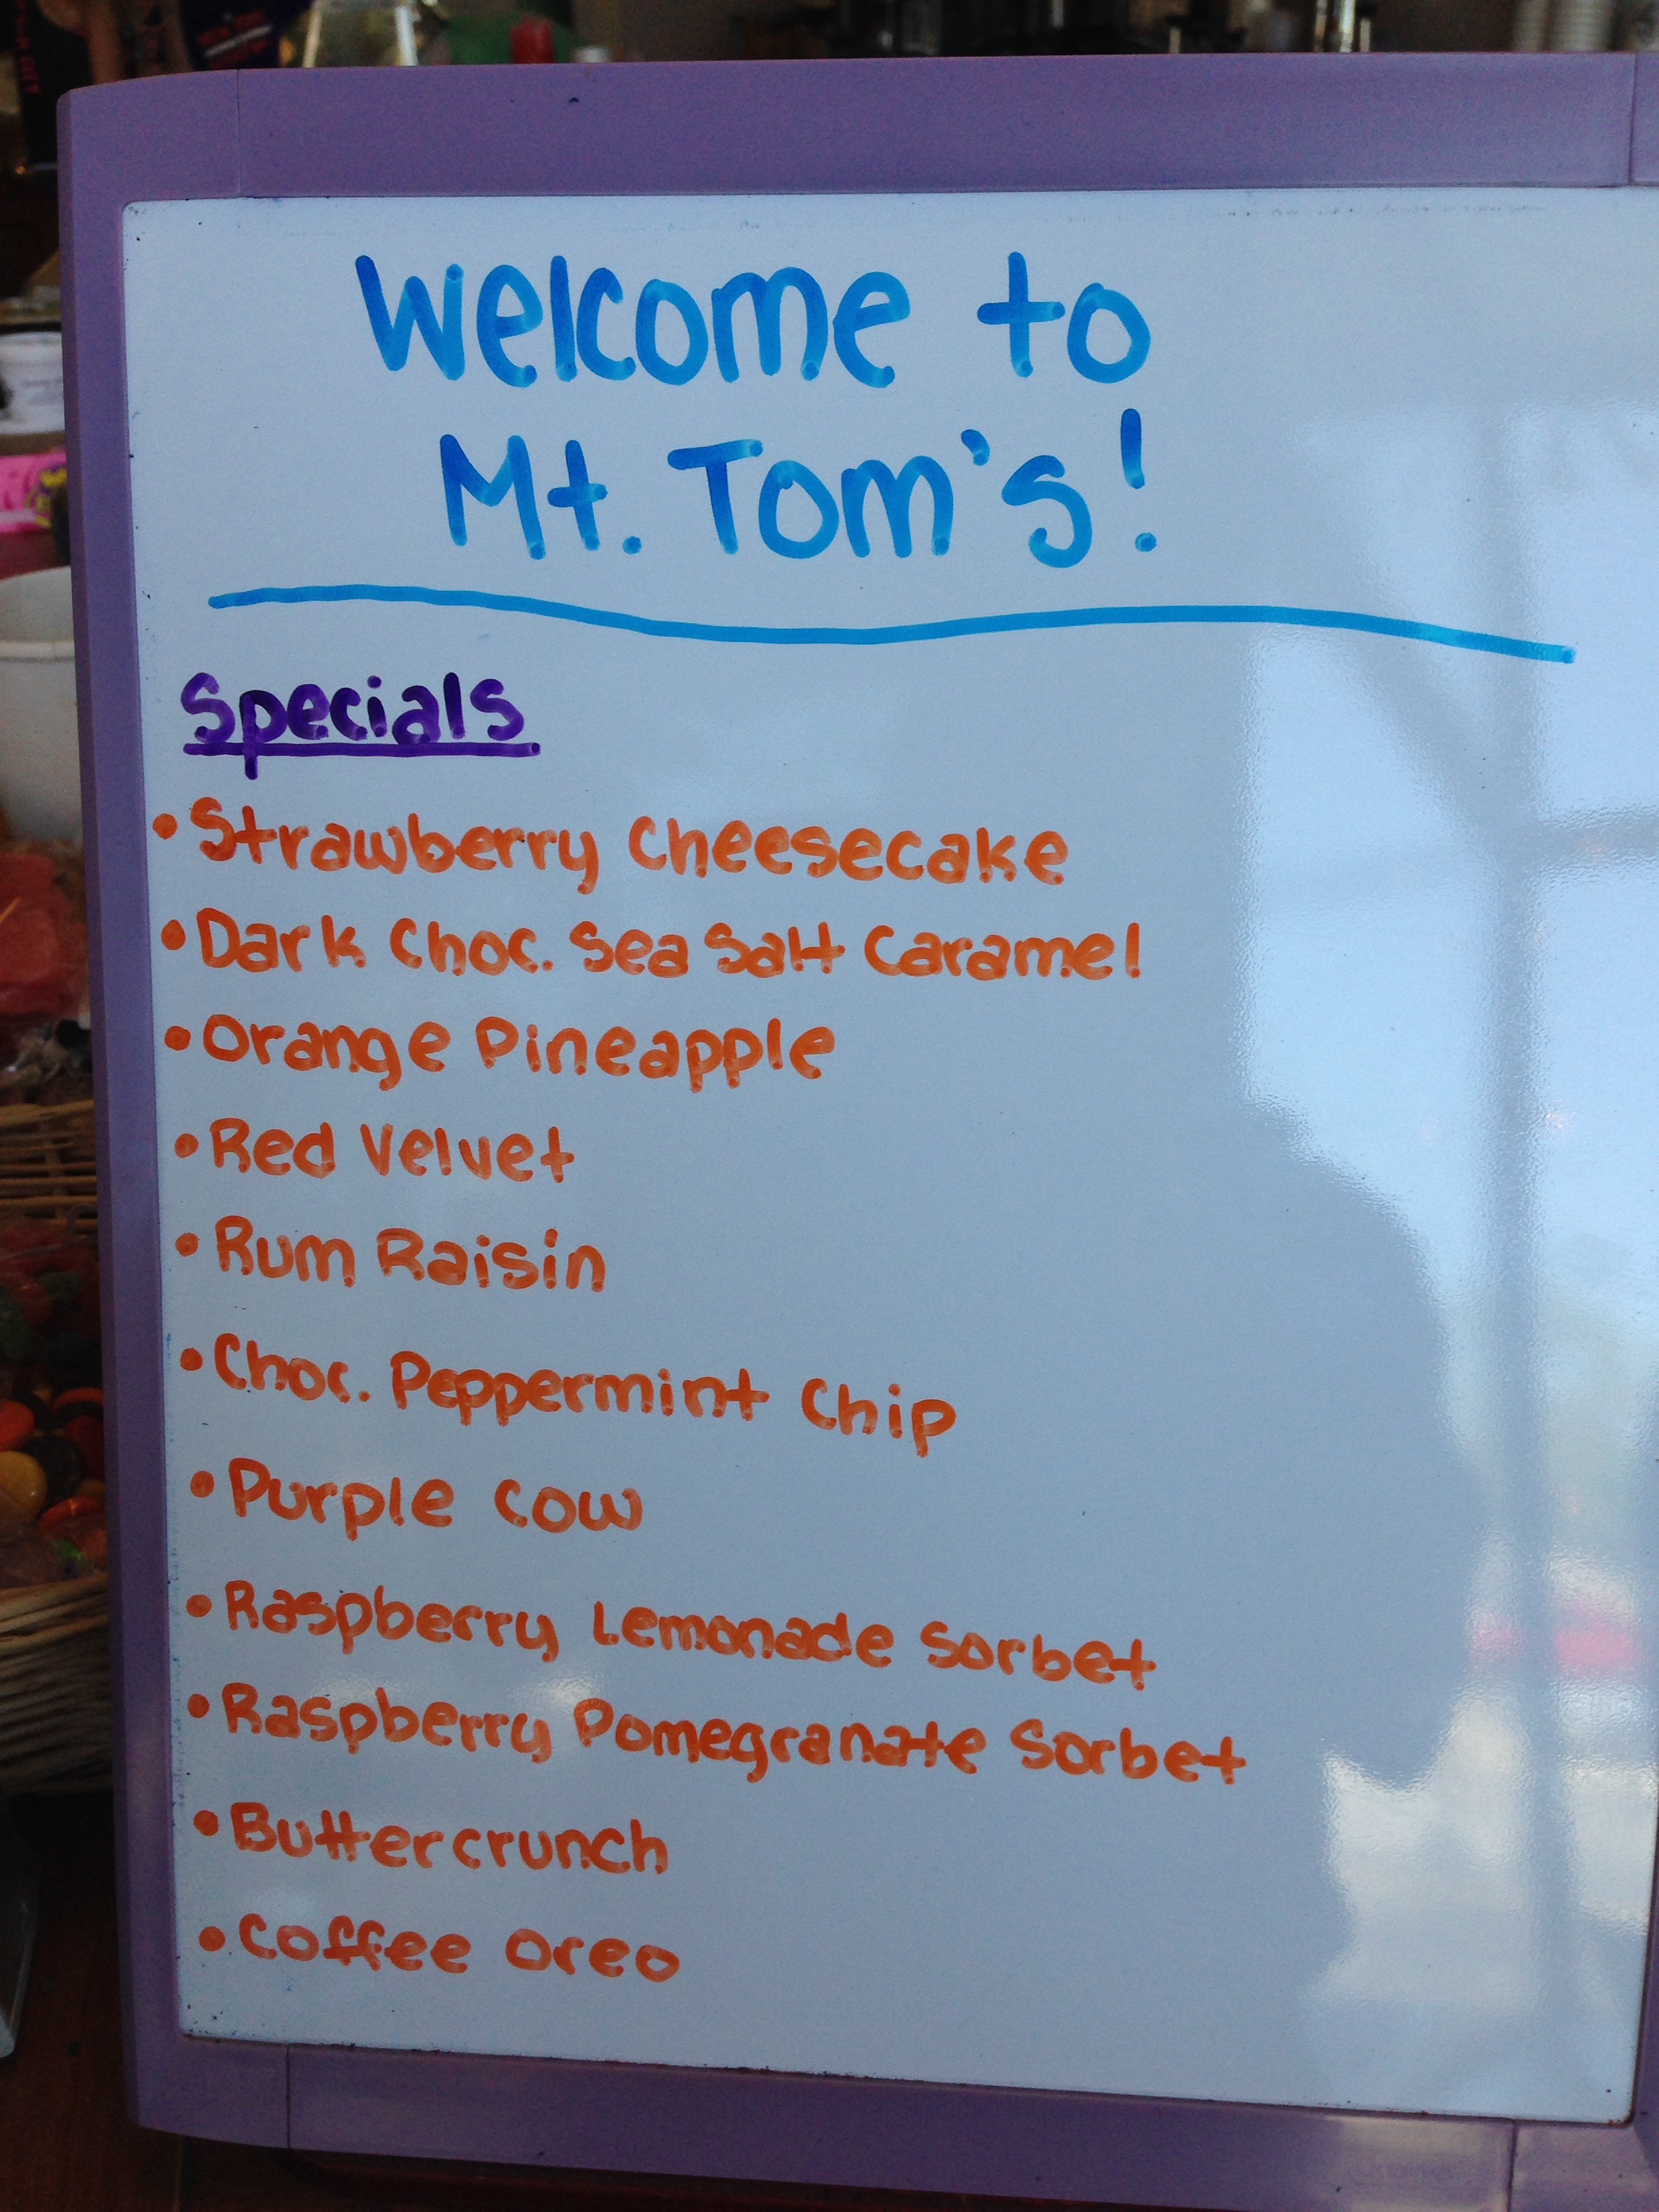 Welcome to
Mt. Tom's!
Specials
• Strawberry Cheesecake
• Dark Choc. Sea Salt Caramel
• Orange Pineapple
• Red Velvet
• Rum Raisin
• Choc. Peppermint Chip
• Purple Cow
• Raspberry Lemonade Sorbet
• Raspberry Pomegranate Sorbet
• Buttercrunch
• Coffee Oreo